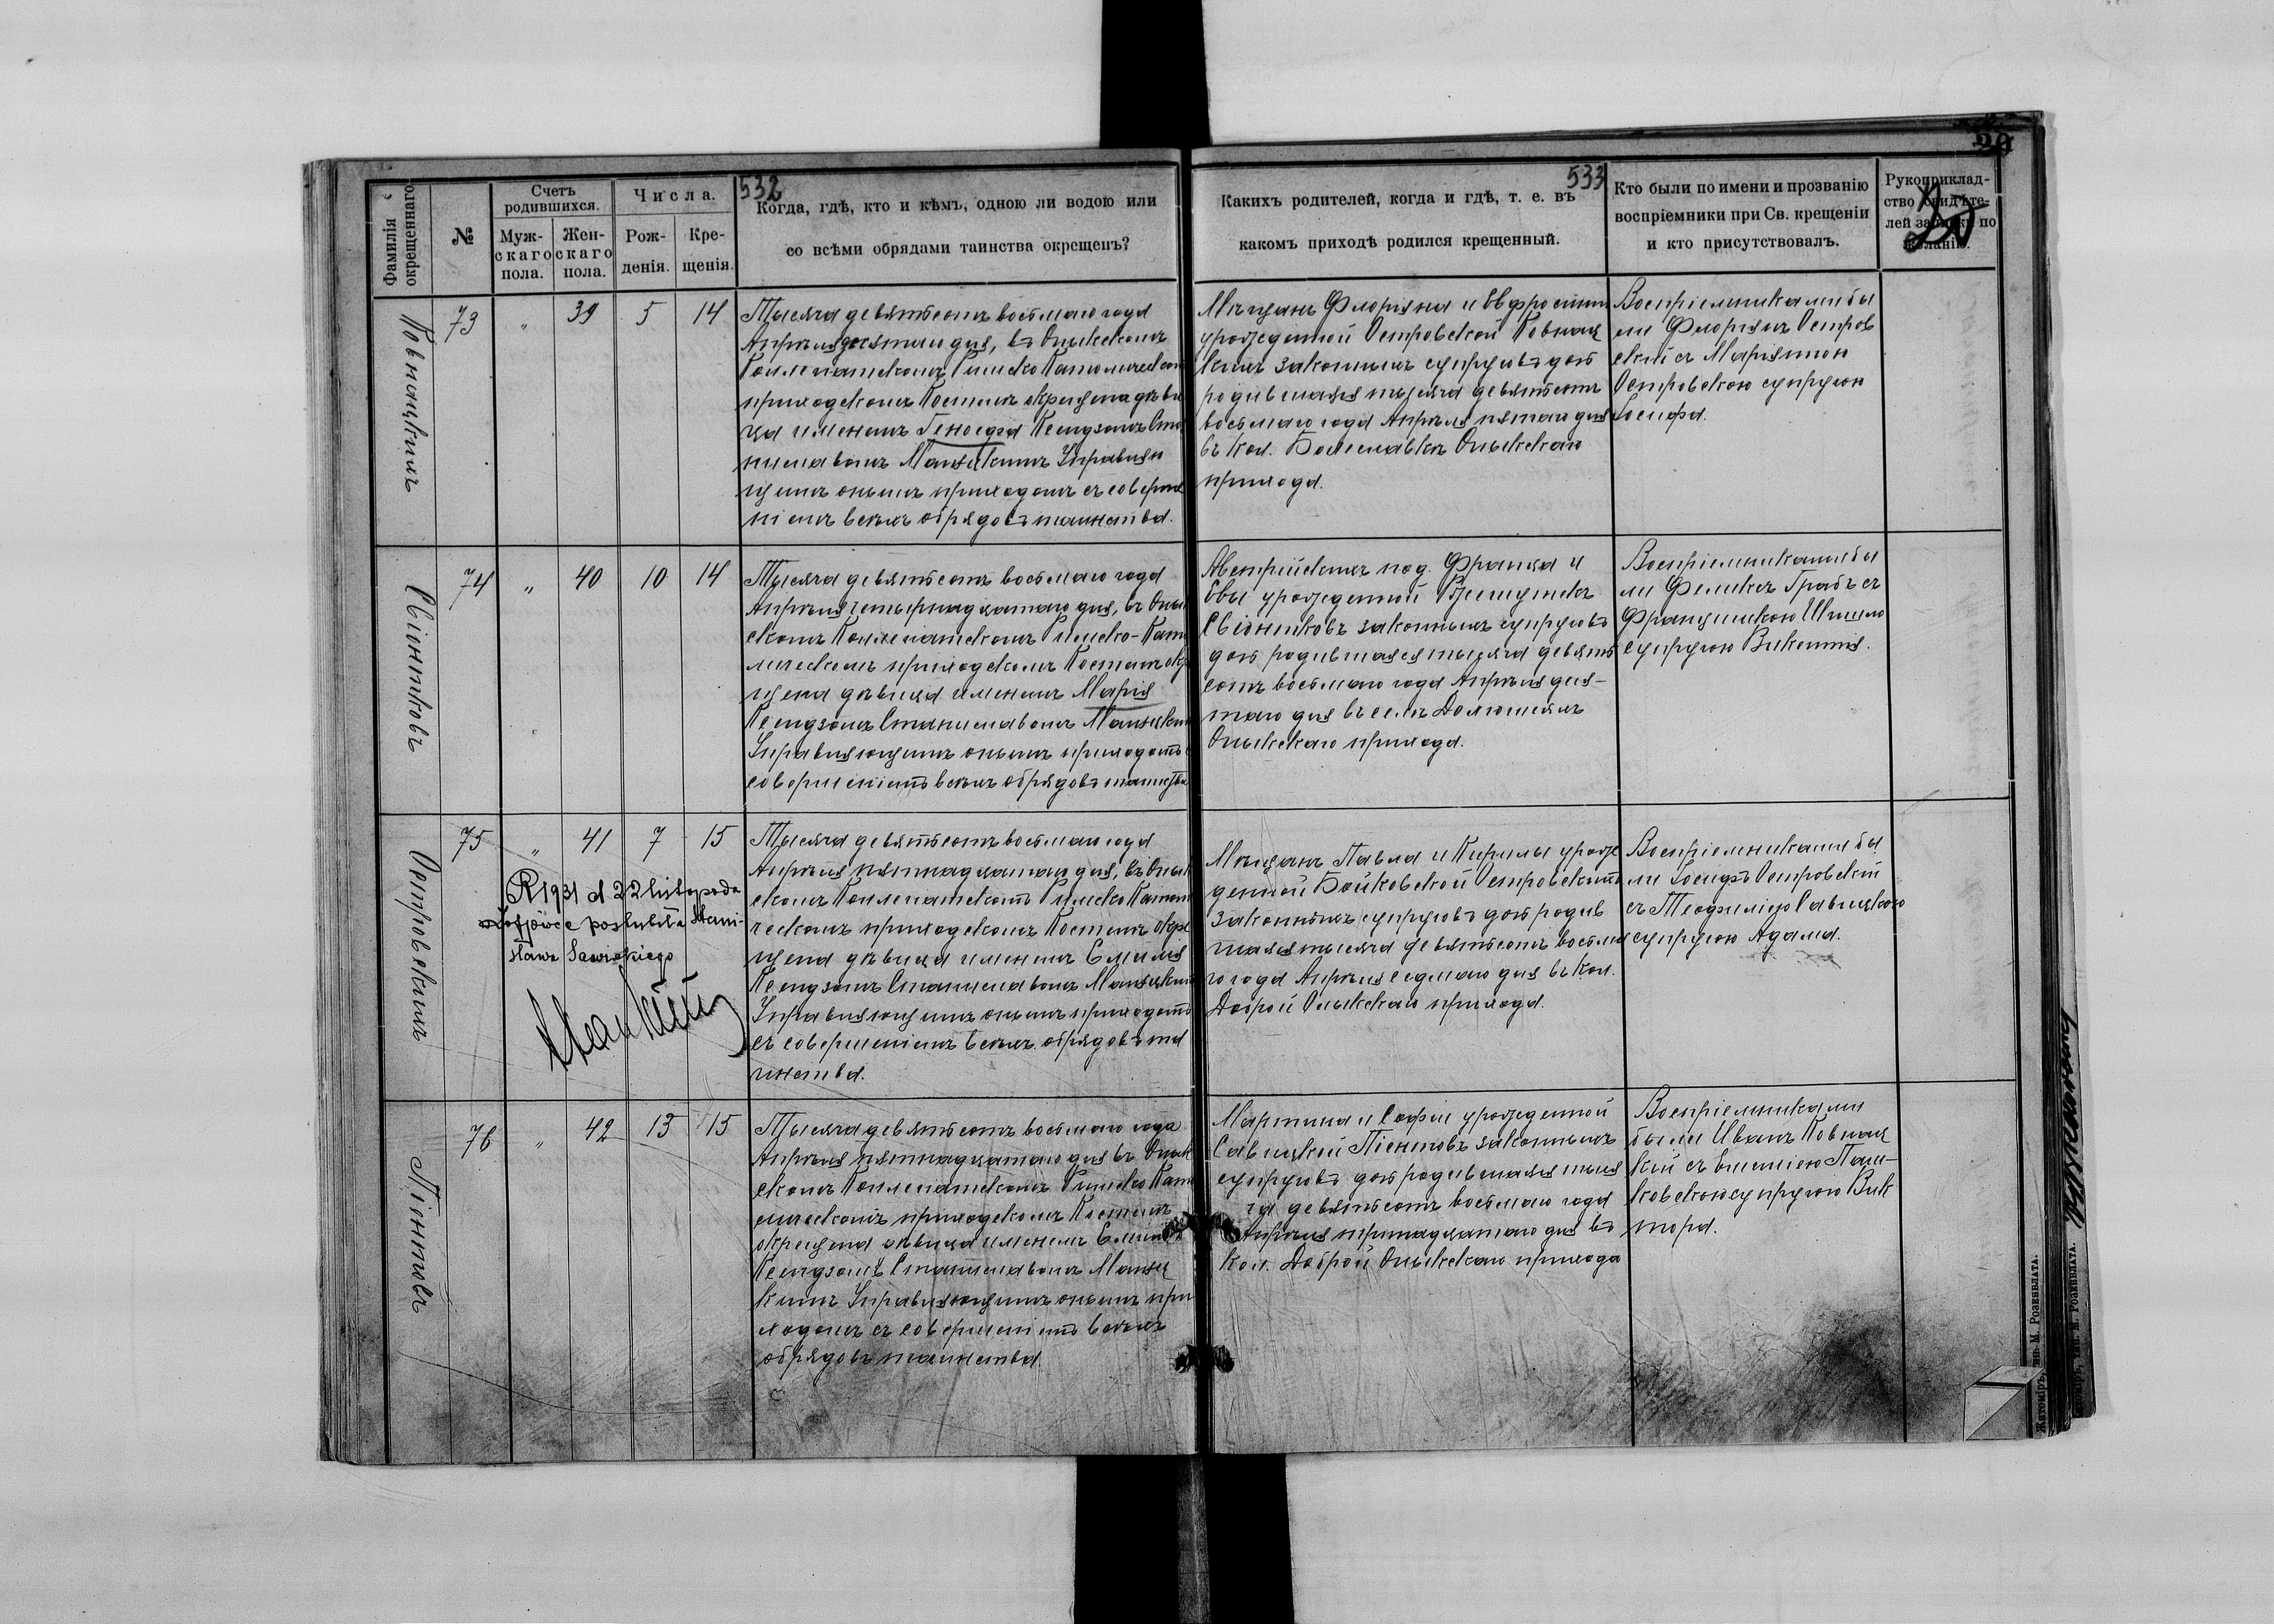 532
533
Фамилія окрещеннаго
№
Счетъ родившихся.
Муж-
скаго
пола.
Жен-
скаго
пола.
Числа.
Рож-
денія.
Кре-
щенія.
Когда, гдѣ, кто и кѣмъ, одною ли водою или
со всѣми обрядами таинства окрещенъ?
Какихъ родителей, когда и гдѣ, т. е. въ
какомъ приходѣ родился крещенный.
Кто были по имени и прозванію
воспріемники при Св. крещеніи
и кто присутствовалъ.
Рукоприклад-
ство свидѣте-
лей записи по
желанію.
Ковнацкихъ
73
"
39
5
14
Тысяча девятьсотъ восьмаго года
Апрѣля дня, въ Олыкскомъ
Коллегіатскомъ Римско Католическом
приходскомъ Костелѣ окрещена дѣви
ца именемъ Ксендзомъ Ста
ниславомъ Управляю
щимъ онымъ приходомъ съ соверше
ніемъ всѣхъ обрядовъ таинства.
Мѣщанъ Флоріяна и Евфросиніи
урожденной Островской Ковнац
кихъ законныхъ супруговъ дочь
родившаяся тысяча девятьсотъ
восьмаго года Апрѣля пятаго дня
въ кол. Болеславкѣ Олыкскаго
прихода.
Воспріемниками бы
ли Флоріянъ Остров
скій съ Маріянною
Островскою супругою
Іосифа.
Свіонтковъ
74
"
40
10
14
Тысяча девятьсотъ восьмаго года
Апрѣля четырнадцатаго дня, въ Олык
скомъ Коллегіатскомъ Римско-Като
лическомъ приходскомъ Костелѣ окре
щена дѣвица именемъ Марія
Ксендзомъ Станиславомъ
Управляющимъ онымъ приходомъ съ
совершеніемъ всѣхъ обрядовъ таинства
Австрійскихъ под. Франца и
Евы урожденной
Свіонтковъ законныхъ супруговъ
дочь родившаяся тысяча девять
сотъ восьмаго года Апрѣля деся-
таго дня въ селѣ
Олыкскаго прихода.
Воспріемниками бы
ли Феликсъ Грабъ съ
Францишкою
супругою Викентія.
Островскихъ
75
"
41
7
15
R 1931 d 22 listopada
w Ołyce poślubiła Stani-
sława Sawickiego
Тысяча девятьсотъ восьмаго года
Апрѣля пятнадцатаго дня, въ Олык
скомъ Коллегіатскомъ Римско Католи
ческомъ приходскомъ Костелѣ окре
щена дѣвица именемъ Емилія
Ксендзомъ Станиславомъ
Управляющимъ онымъ приходомъ
съ совершеніемъ всѣхъ обрядовъ та
инства.
Мѣщанъ Павла и урож
денной Бойковской Островскихъ
законныхъ супруговъ дочь родив
шаяся тысяча девятьсотъ восьма
го года Апрѣля седмаго дня въ кол.
Доброй Олыкскаго прихода.
Воспріемниками бы
ли Іосифъ Островскій
съ Теофиліею Савицкою
супругою Адама.
Піонтовъ
76
"
42
13
15
Тысяча девятьсотъ восьмаго года
Апрѣля пятнадцатаго дня въ Олык
скомъ Коллегіатскомъ Римско Като
лическомъ приходскомъ Костелѣ
окрещена дѣвица именемъ Емилія
Ксендзомъ Станиславомъ
Управляющимъ онымъ при
ходомъ съ совершеніемъ всѣхъ
обрядовъ таинства.
Мартина и Софіи урожденной
Савицкой Піонтовъ законныхъ
супруговъ дочь родившаяся тыся
ча девятьсотъ восьмаго года
Апрѣля тринадцатаго дня въ
кол. Доброй Олыкскаго прихода
Воспріемниками
были Иванъ Ковнац
кій съ
ковскою супругою Вик
тора.
М. Розенблата.